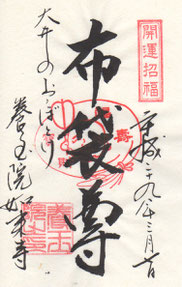 開運招福
平成二十九年三月吉日
布袋尊
大井のおほとけ
養玉院如来寺